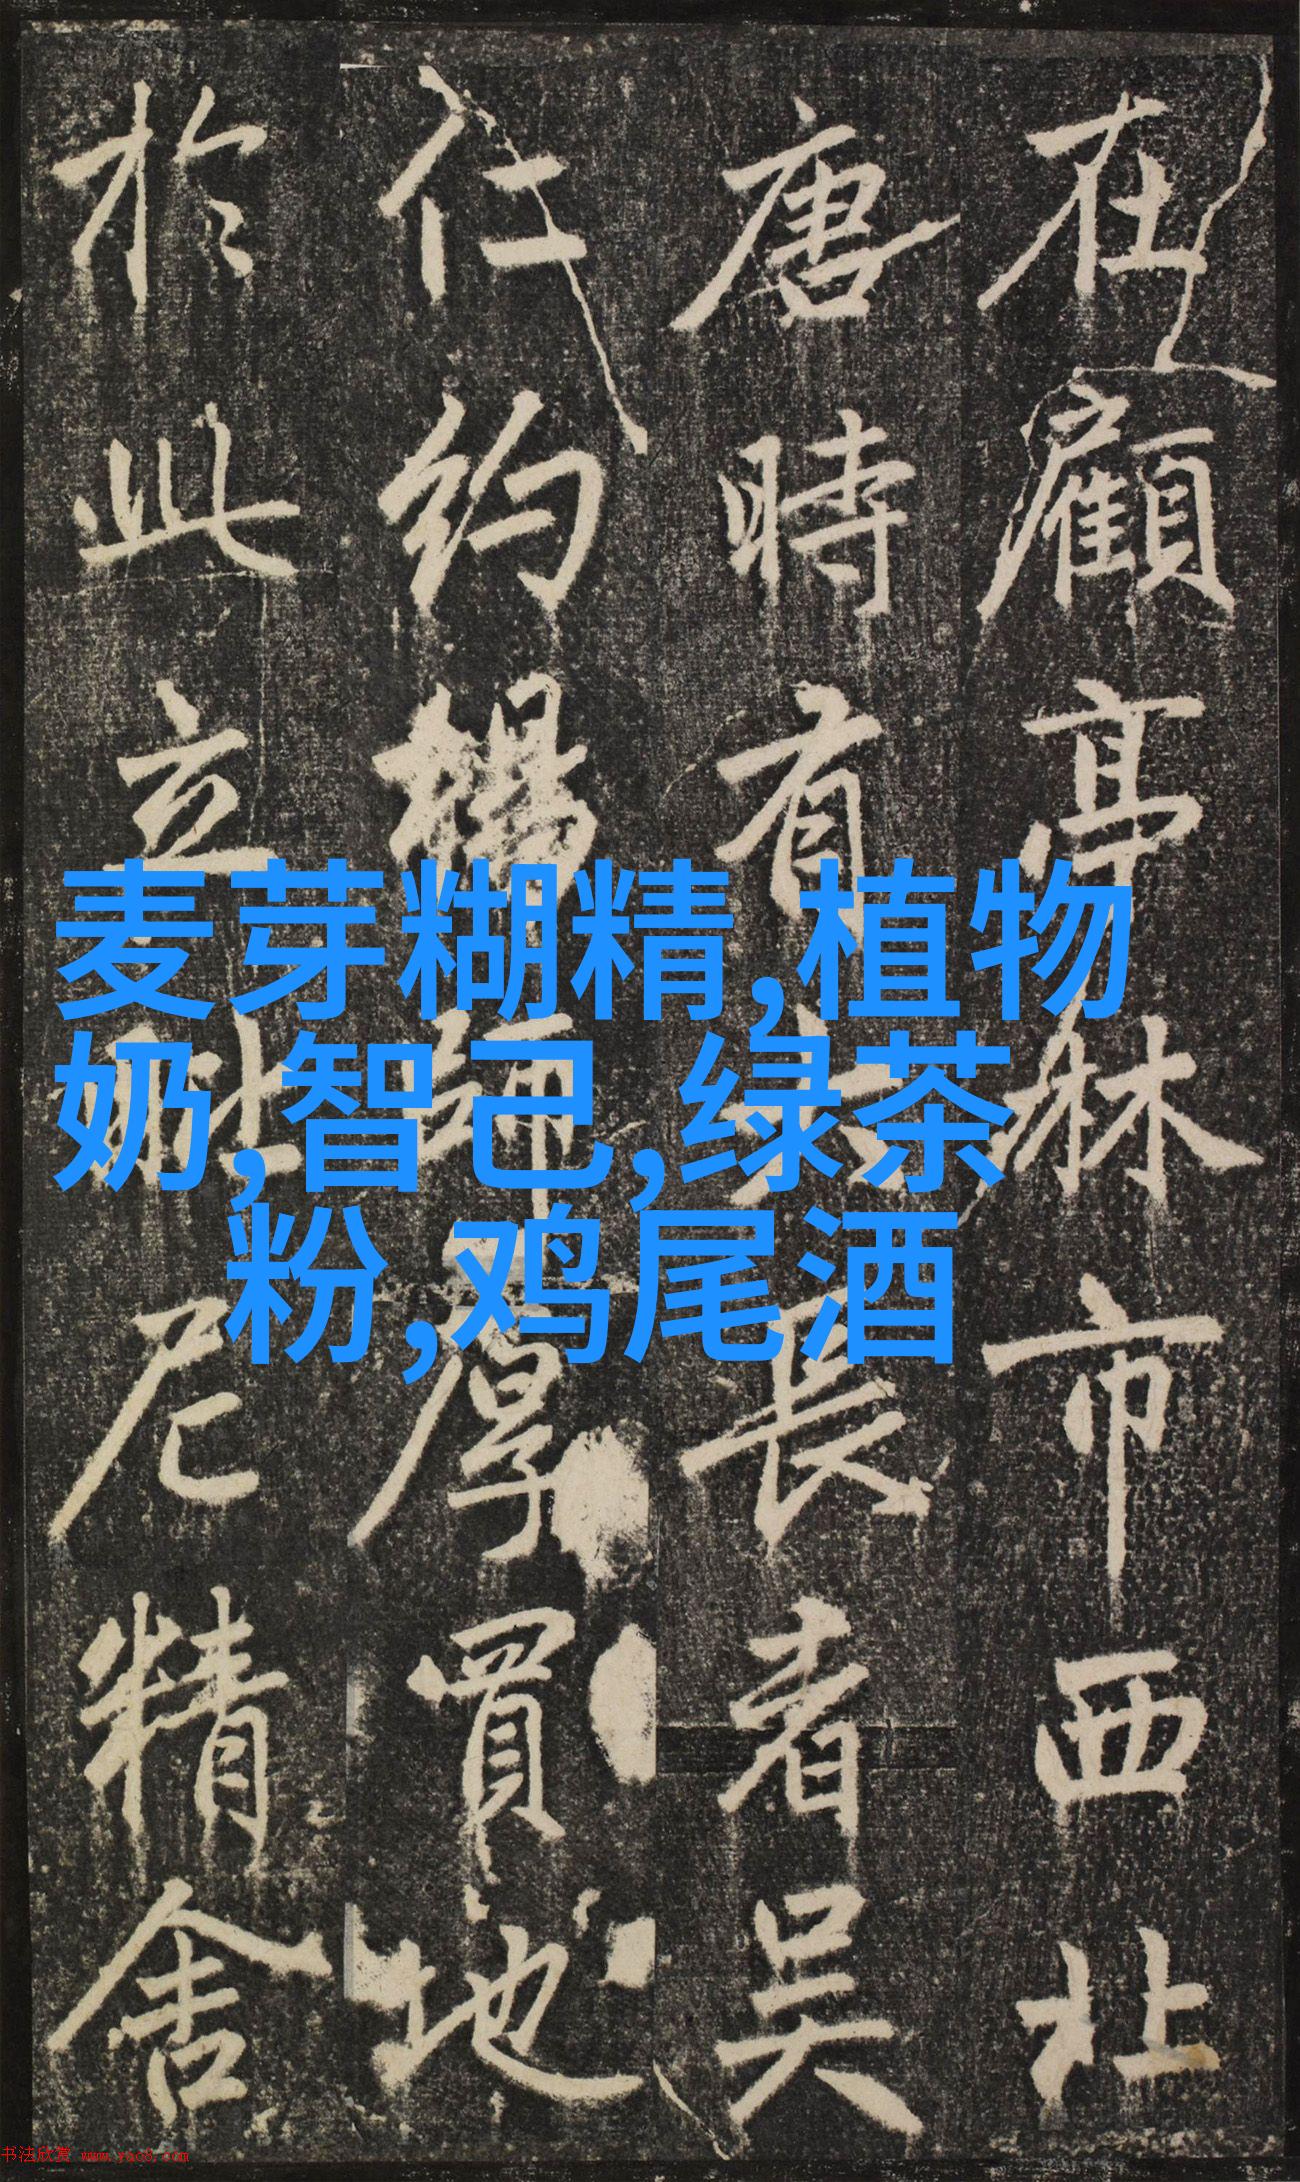 在顧亭林市西北
唐時有長者吳
仁約楊師厚買地
於此立毗尼精舍
麦芽糊精,植物
奶,智己,绿茶
粉,鸡尾酒
书法欣赏 www.yac8.com